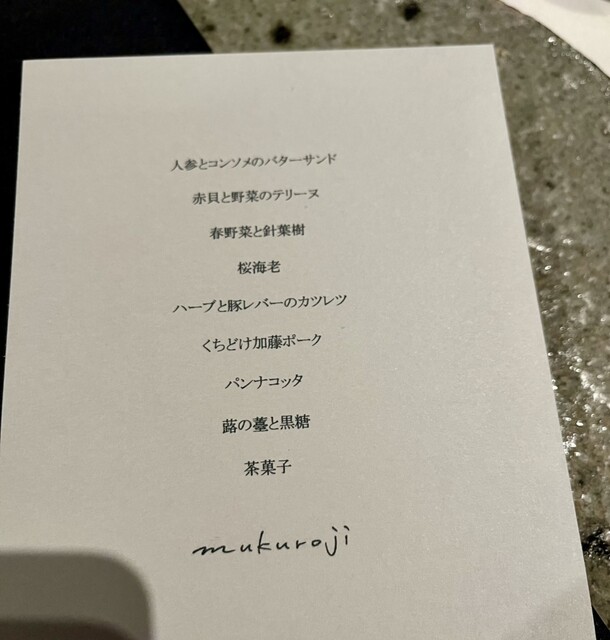 人参とコンソメのバターサンド
赤貝と野菜のテリーヌ
春野菜と針葉樹
桜海老
ハーブと豚レバーのカツレツ
くちどけ加藤ポーク
パンナコッタ
蕗の薹と黒糖
茶菓子
mukuroji